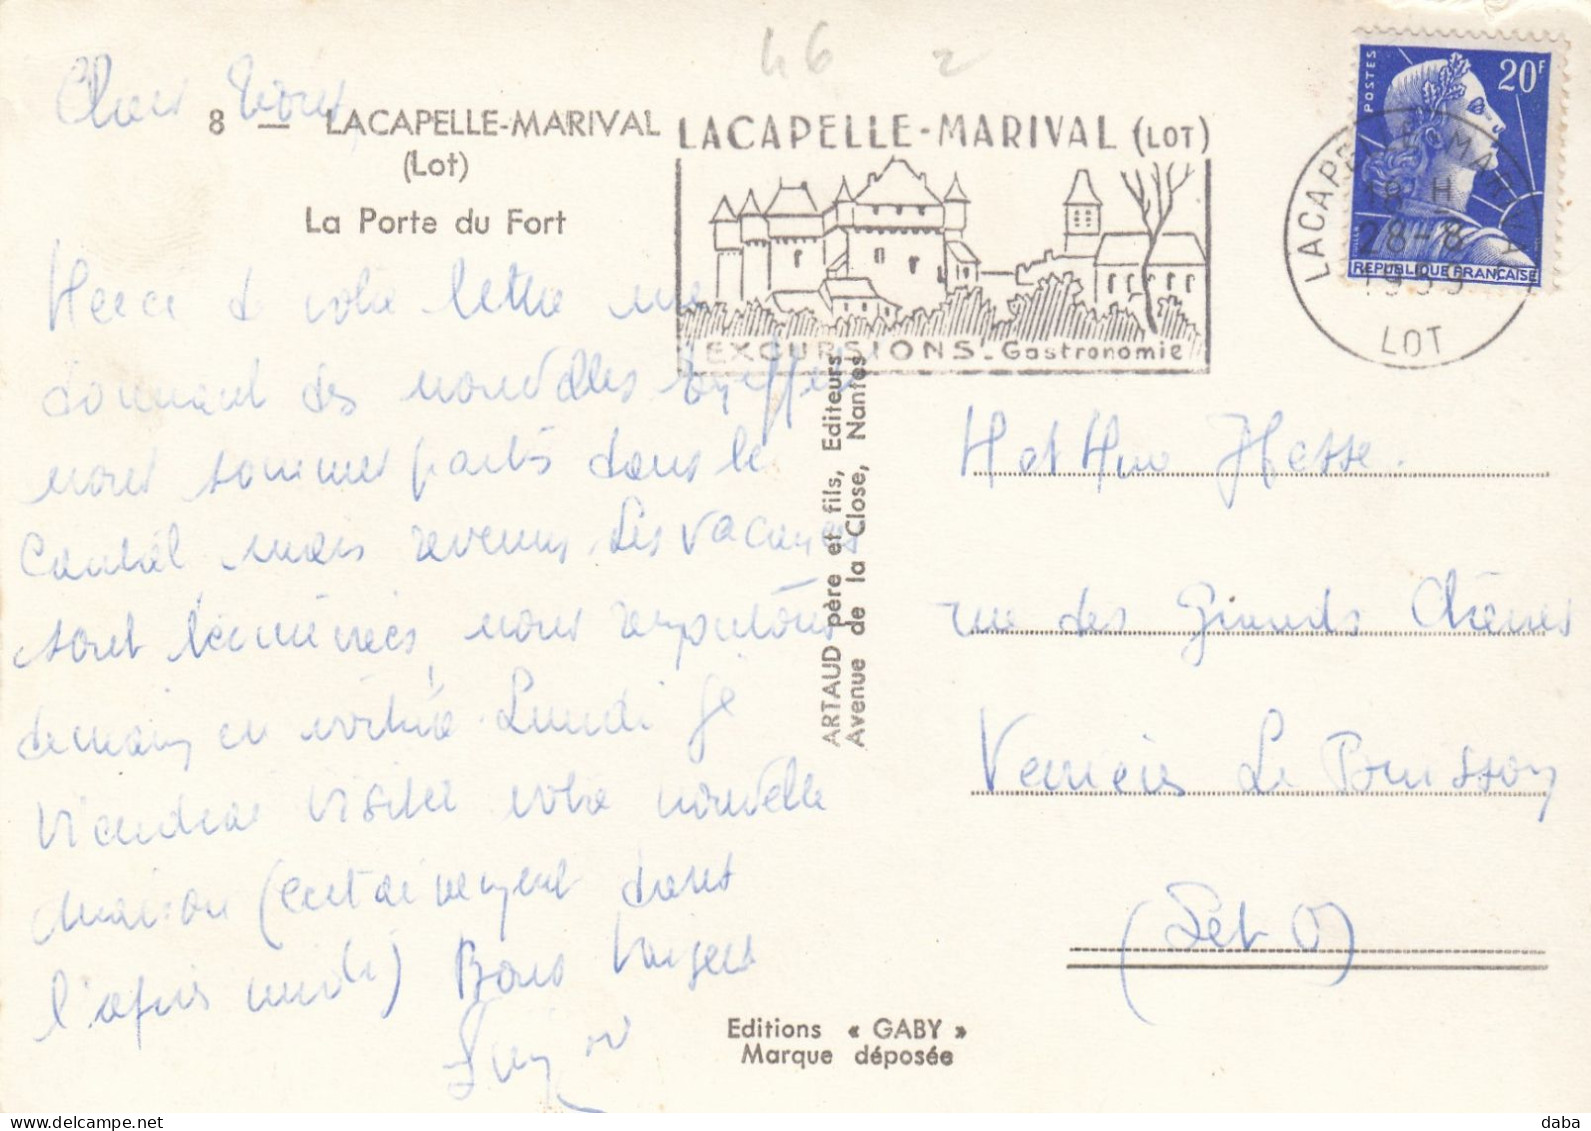 46 2
8 — LACAPELLE-MARIVAL
(Lot)
La Porte du Fort
LACAPELLE-MARIVAL (LOT)
EXCURSIONS - Gastronomie
POSTES
20F
REPUBLIQUE FRANÇAISE
LACAPELLE-MARIVAL
18 H
28-8
1959
LOT
Chers
Merci de votre lettre me
donnant des nouvelles
nous sommes partis dans le
Cantal mais revenus. Les vacances
sont terminées, nous repartons
demain en voiture. Lundi je
viendrai visiter votre nouvelle
maison (certainement dans
l'après midi) Bons baisers
ARTAUD père et fils, Editeurs
Avenue de la Close, Nantes
Editions « GABY »
Marque déposée
Hesse.
rue des Grands Chênes
Verrières Le Buisson
(S et O)
daba